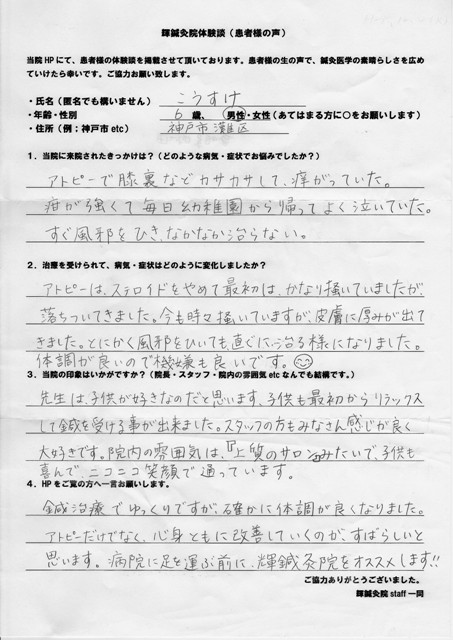 輝鍼灸院体験談（患者様の声）
当院HPにて、患者様の体験談を掲載させて頂いております。患者様の生の声で、鍼灸医学の素晴らしさを広め
ていけたら幸いです。ご協力お願い致します。
・氏名（匿名でも構いません） こうすけ
・年齢・性別 6 歳、 男性・女性（あてはまる方に○をお願いします）
・住所（例：神戸市 etc） 神戸市灘区
1．当院に来院されたきっかけは？（どのような病気・症状でお悩みでしたか？）
アトピーで膝裏などカサカサして、痒がっていた。
疳が強くて毎日幼稚園から帰ってよく泣いていた。
すぐ風邪をひき、なかなか治らない。
2．治療を受けられて、病気・症状はどのように変化しましたか？
アトピーは、ステロイドをやめて最初は、かなり掻いていましたが、
落ちついてきました。今も時々掻いていますが、皮膚に厚みが出て
きました。とにかく風邪をひいても、直ぐに、治る様になりました。
体調が良いので機嫌も良いです。
3．当院の印象はいかがですか？（院長・スタッフ・院内の雰囲気 etc なんでも結構です。）
先生は、子供が好きなのだと思います、子供も最初からリラックス
して鍼を受ける事が出来ました。スタッフの方もみなさん感じが良く
大好きです。院内の雰囲気は、『上質のサロン』みたいで、子供も
喜んで、ニコニコ笑顔で通っています。
4．HPをご覧の方へ一言お願いします。
鍼治療でゆっくりですが、確かに体調が良くなりました。
アトピーだけでなく、心身ともに改善していくのが、すばらしいと
思います。病院に足を運ぶ前に、輝鍼灸院をオススメします!!
ご協力ありがとうございました。
輝鍼灸院 staff 一同